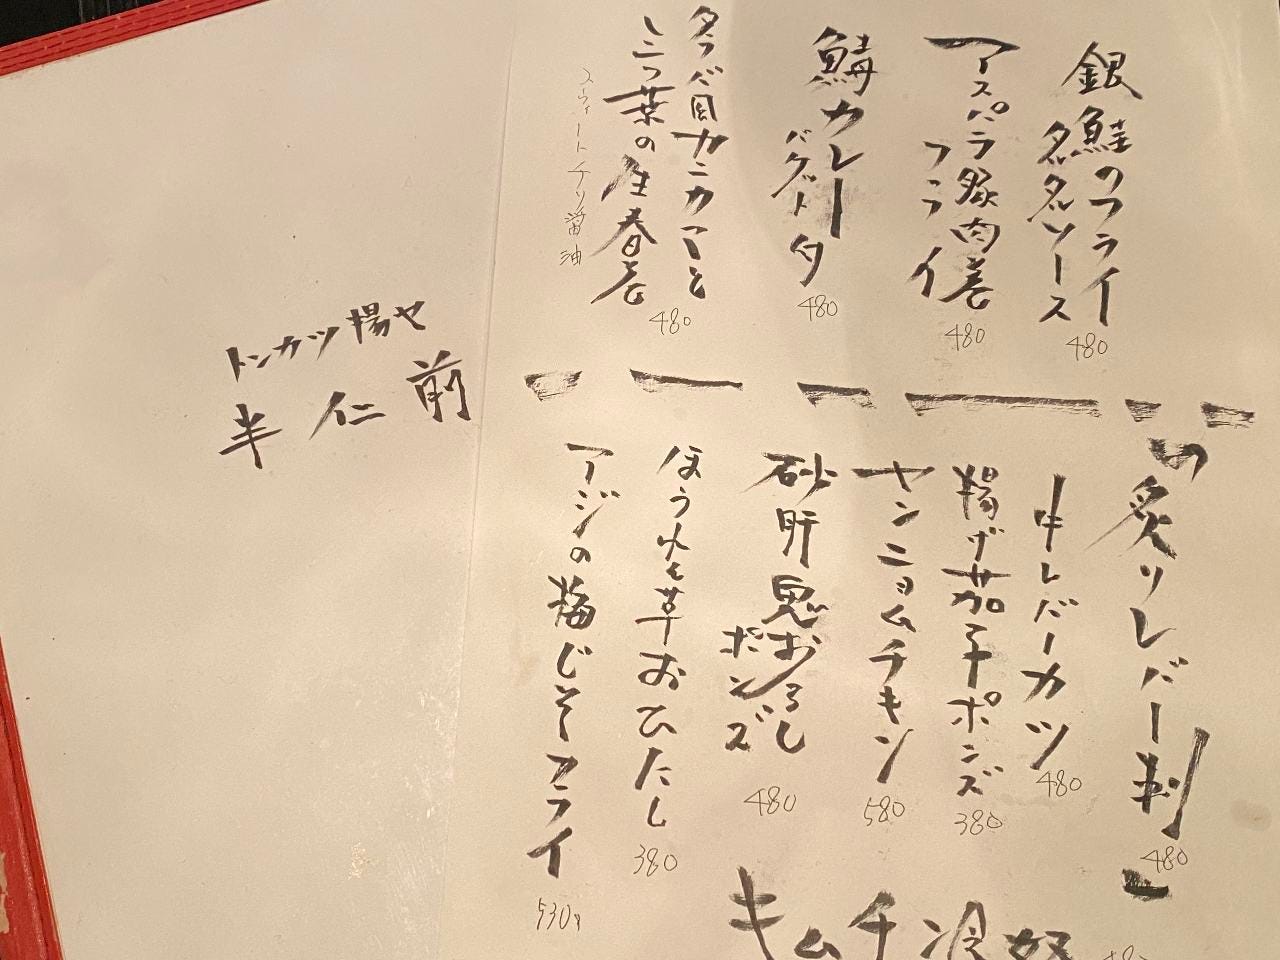 銀鮭のフライ
タルタルソース
480
アスパラ豚肉巻
フライ
480
鯖カレー
バゲット
480
タラバ風カニカマと
三つ葉の生春巻
スウィートチリ醤油
480
「炙りレバー刺」
480
牛レバーカツ
480
揚げ茄子ポンズ
380
ヤンニョムチキン
580
砂肝鬼おろし
ポンズ
480
ほうれん草おひたし
380
アジの梅じそフライ
530
キムチ冷奴
トンカツ揚セ
半仁前